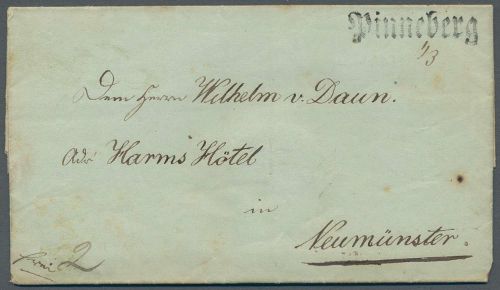 Pinneberg
1/3
Dem Herrn Wilhelm v. Daun.
Adr Harms Hôtel
in
Neumünster.
frei 2